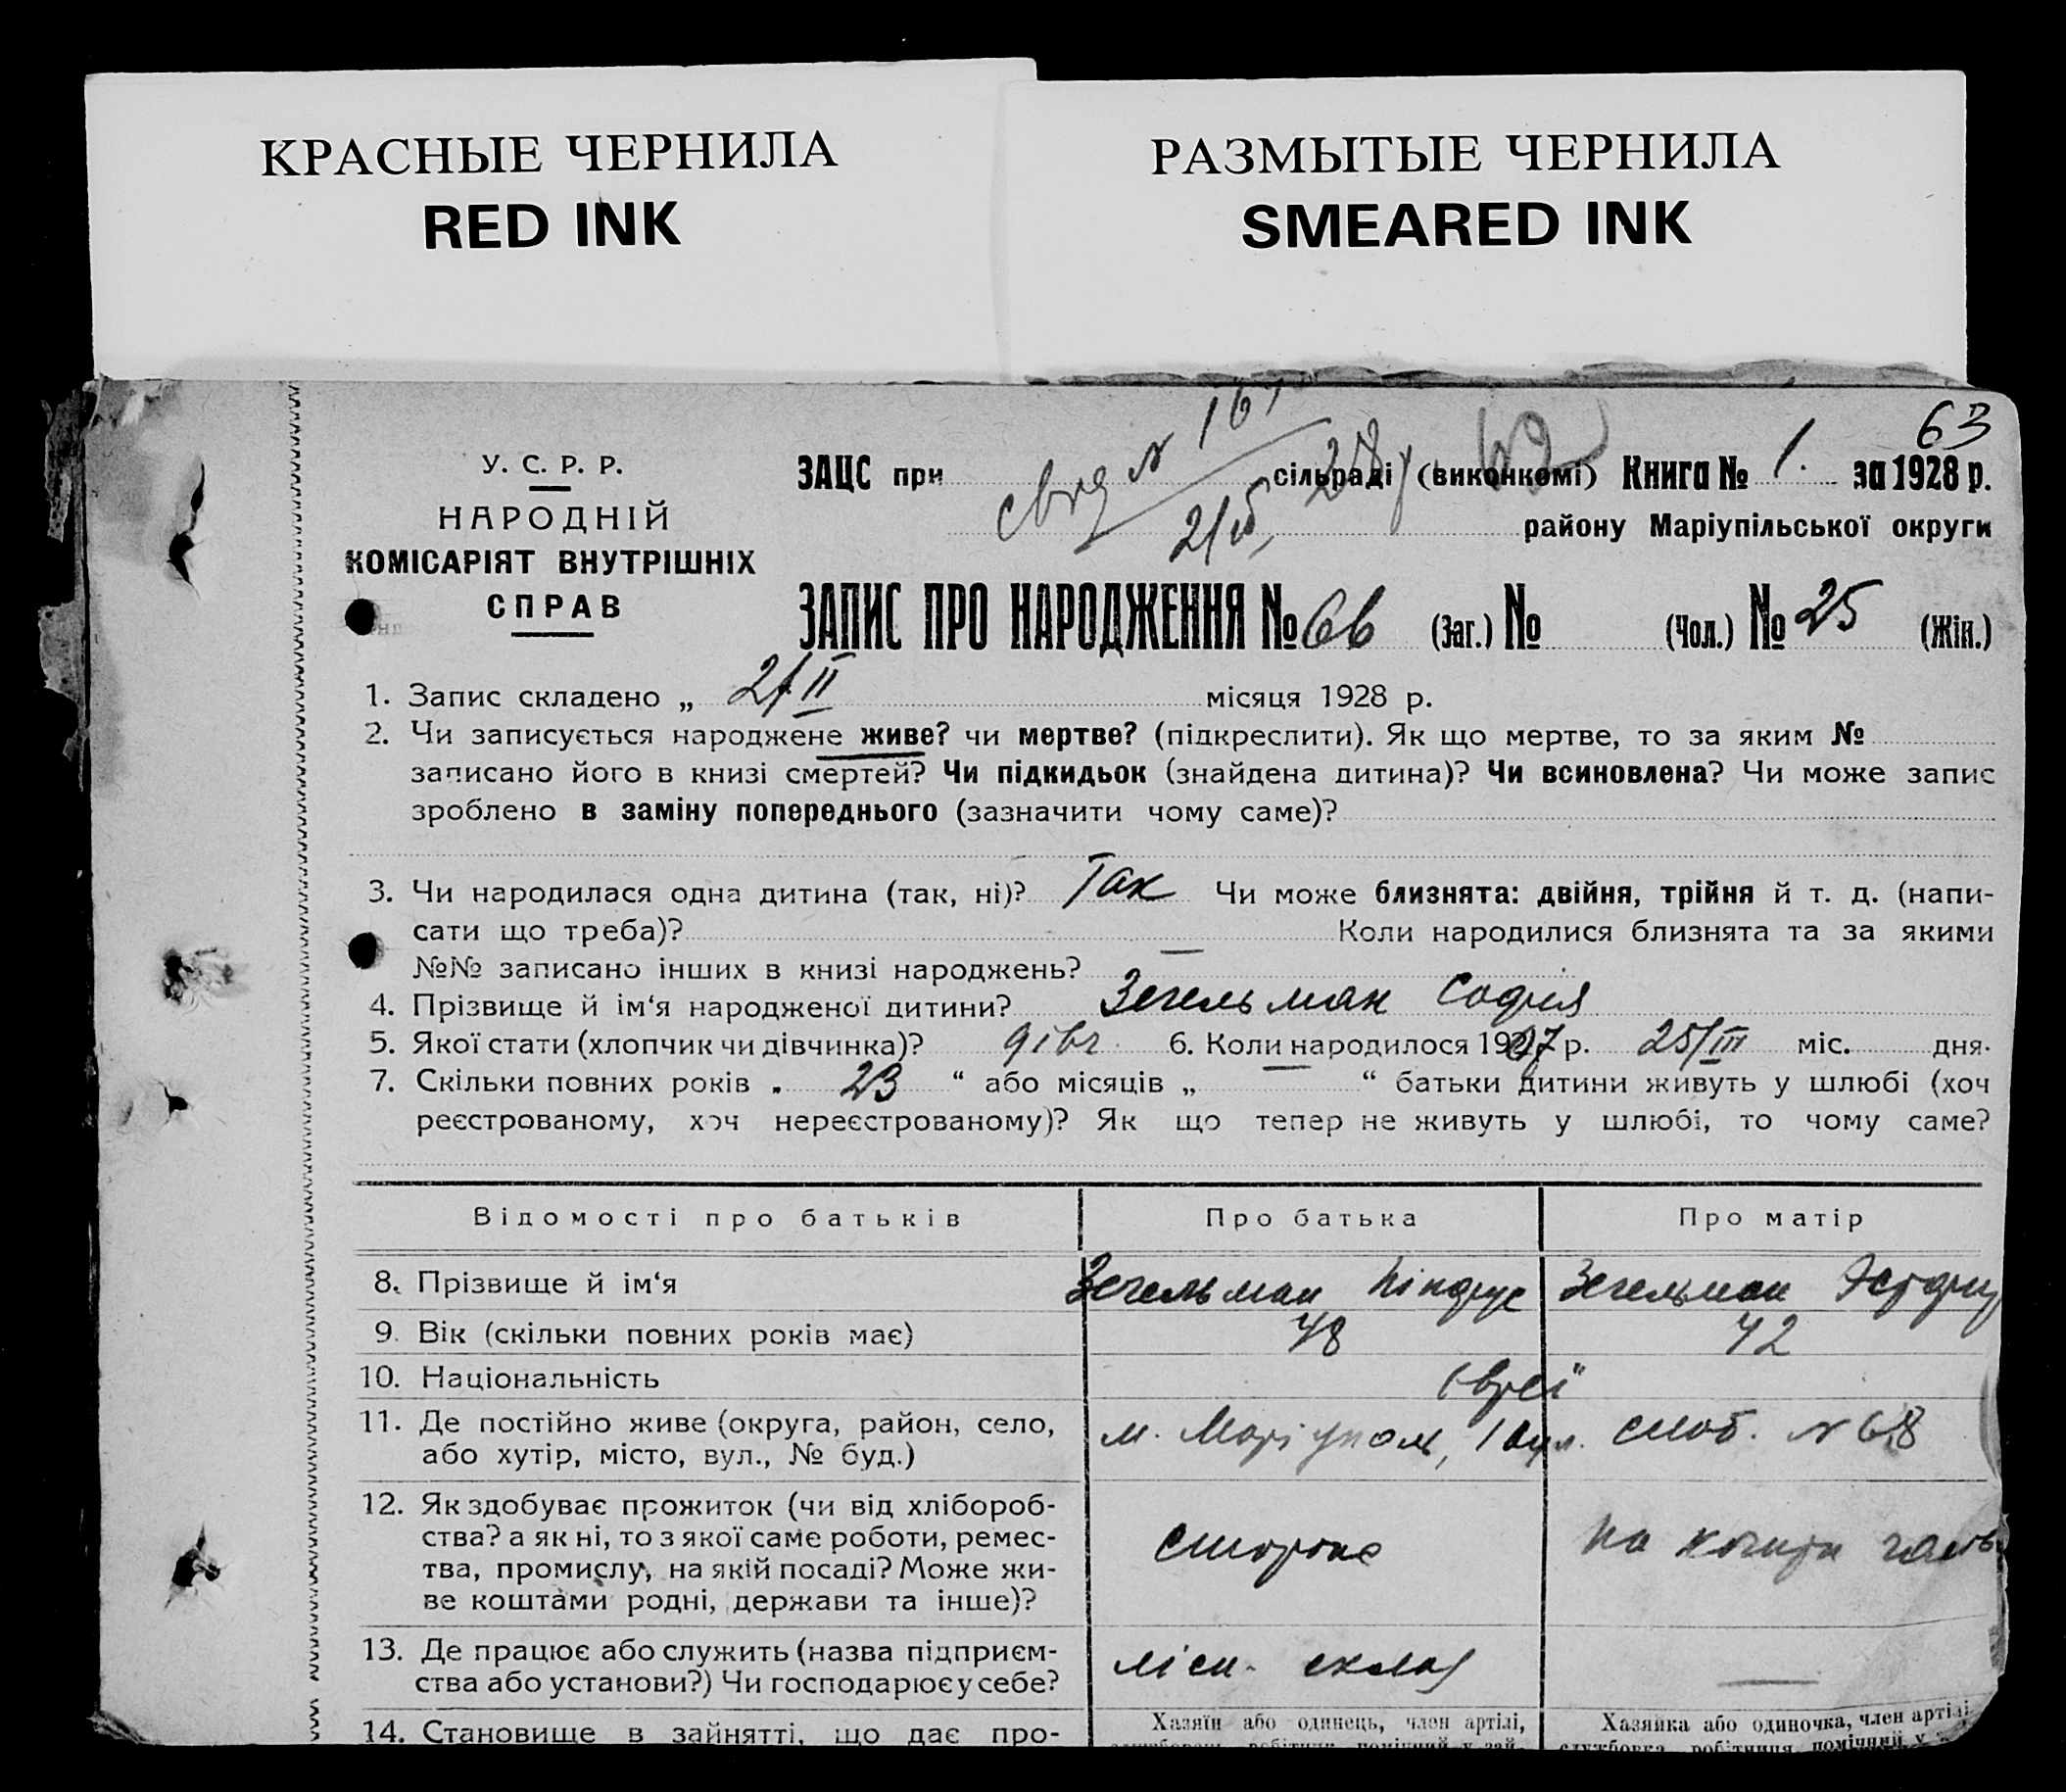 КРАСНЫЕ ЧЕРНИЛА
RED INK
РАЗМЫТЫЕ ЧЕРНИЛА
SMEARED INK
63
У. С. Р. Р.
НАРОДНІЙ
КОМІСАРІЯТ ВНУТРІШНІХ
СПРАВ
ЗАЦС при сільраді (виконкомі) Книга № 1. за 1928 р.
району Маріупільської округи
ЗАПИС ПРО НАРОДЖЕННЯ № 66 (Заг.) № (Чол.) № 25 (Жін.)
1. Запис складено „ 2/II місяця 1928 р.
2. Чи записується народжене живе? чи мертве? (підкреслити). Як що мертве, то за яким №
записано його в книзі смертей? Чи підкидьок (знайдена дитина)? Чи всиновлена? Чи може запис
зроблено в заміну попереднього (зазначити чому саме)?
3. Чи народилася одна дитина (так, ні)? Так Чи може близнята: двійня, трійня й т. д. (напи-
сати що треба)? Коли народилися близнята та за якими
№№ записано інших в книзі народжень? —
4. Прізвище й ім‘я народженої дитини? Зегельман София
5. Якої стати (хлопчик чи дівчинка)? дівч. 6. Коли народилося 1907 р. 25/III міс. дня.
7. Скільки повних років „ 23 “ або місяців „ — “ батьки дитини живуть у шлюбі (хоч
реєстрованому, хоч нереєстрованому)? Як що тепер не живуть у шлюбі, то чому саме?
Відомості про батьків Про батька Про матір
8. Прізвище й ім‘я Зегельман Піндрус Зегельман
9. Вік (скільки повних років має) 48 42
10. Національність євреї
11. Де постійно живе (округа, район, село,
або хутір, місто, вул., № буд.) м. Маріуполь, 1 вул. слоб. № 68
12. Як здобуває прожиток (чи від хлібороб-
ства? а як ні, то з якої саме роботи, ремес-
тва, промислу, на якій посаді? Може жи-
ве коштами родні, держави та інше)? сторож на кошти
13. Де працює або служить (назва підприєм-
ства або установи?) Чи господарює у себе? лісн. склад —
14. Становище в зайнятті, що дає про-
Хазяїн або одинець, член артілі,
Хазяйка або одиночка, член артілі